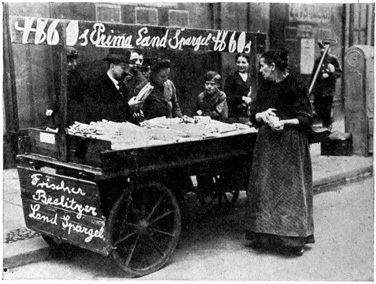 60s Prima Land Spargel 60s
Frischer
Beelitzer
Land Spargel